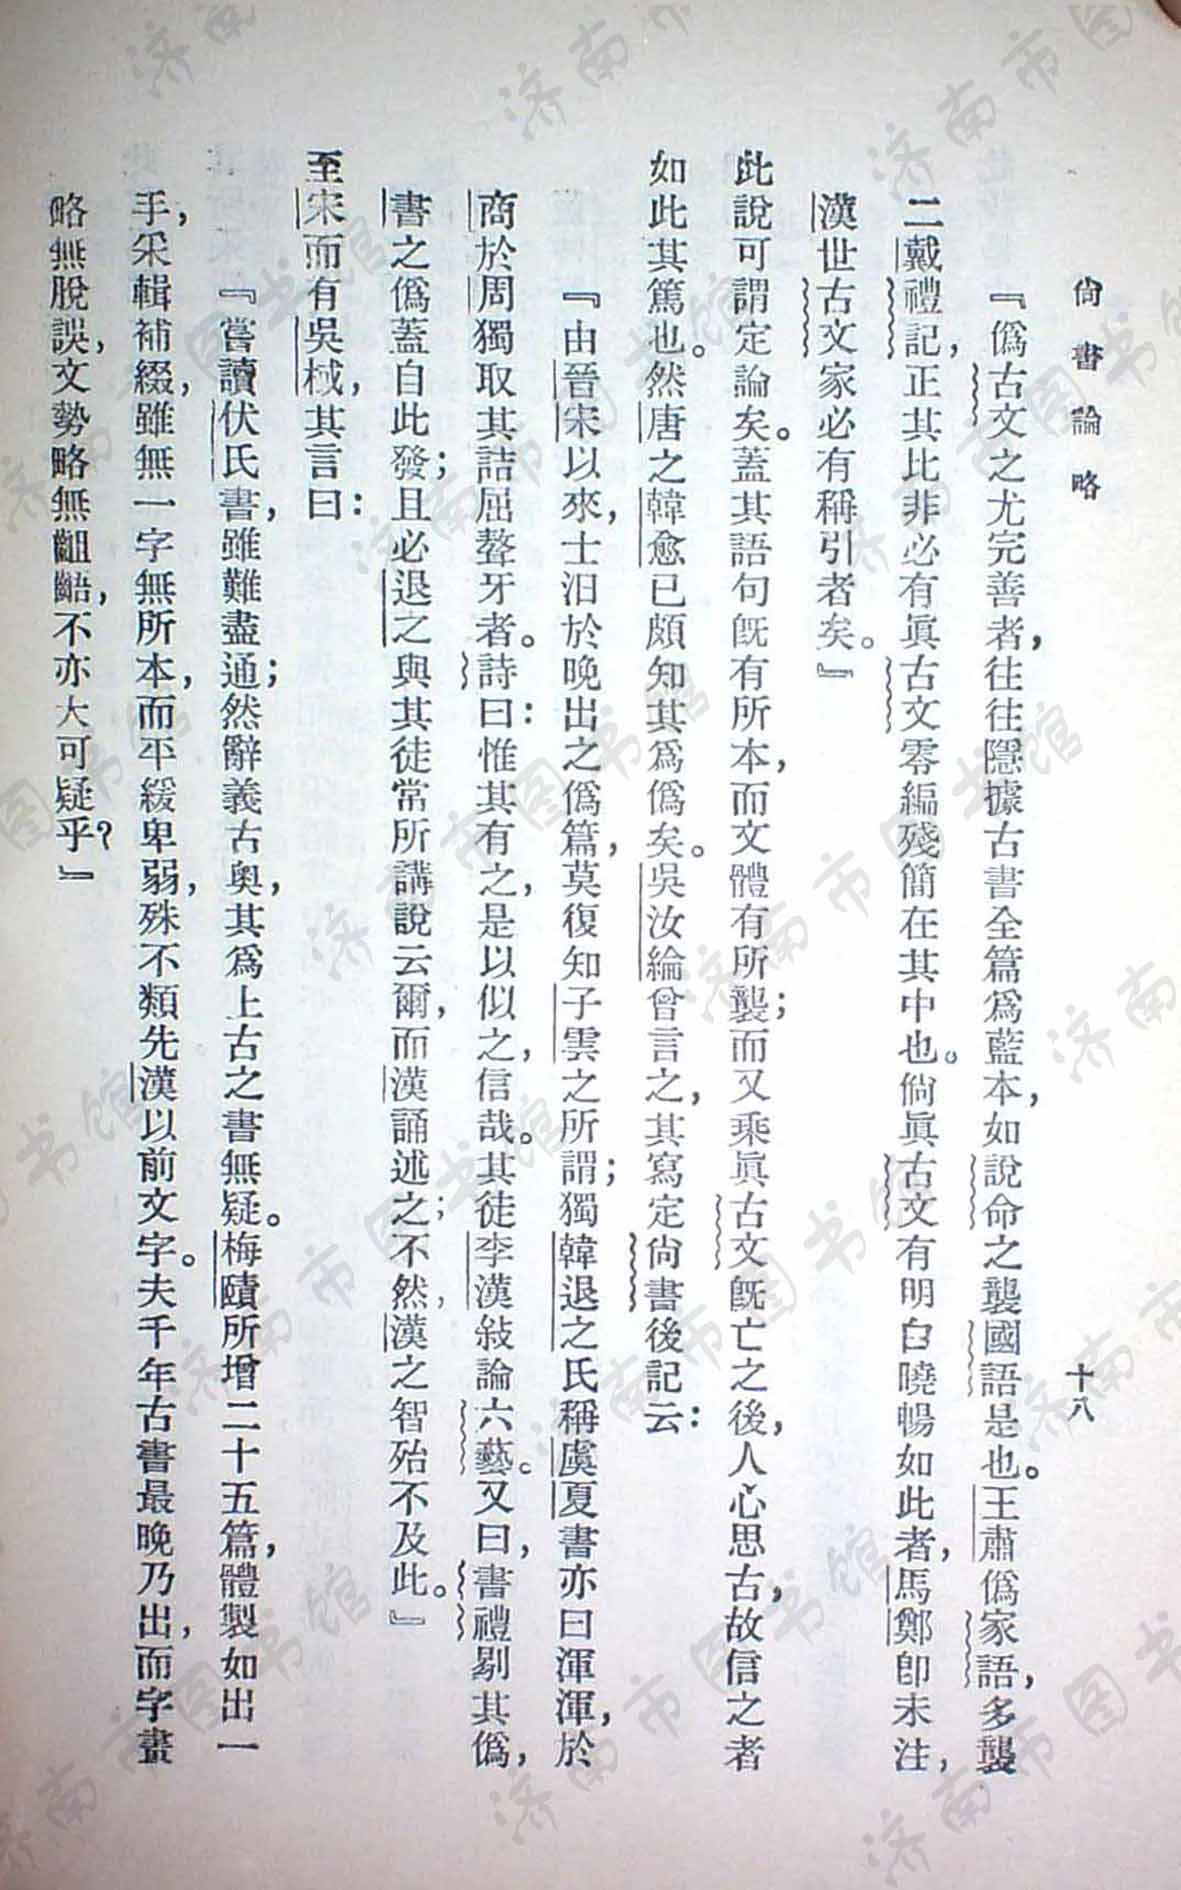 尙書論略
十八
『僞古文之尤完善者，往往隱據古書全篇爲藍本，如說命之襲國語是也。王肅僞家語，多襲
二戴禮記，正其比非必有眞古文零編殘簡在其中也。倘眞古文有明白曉暢如此者，馬鄭卽未注，
漢世古文家必有稱引者矣。』
此說可謂定論矣。蓋其語句旣有所本，而文體有所襲；而又乘眞古文旣亡之後，人心思古，故信之者
如此其篤也。然唐之韓愈已頗知其爲僞矣。吳汝綸曾言之，其寫定尙書後記云：
『由晉宋以來，士汨於晚出之僞篇，莫復知子雲之所謂；獨韓退之氏稱虞夏書亦曰渾渾，於
商於周獨取其詰屈聱牙者。詩曰：惟其有之，是以似之，信哉。其徒李漢敍論六藝。又曰，書禮剔其僞，
書之僞蓋自此發；且必退之與其徒常所講說云爾，而漢誦述之；不然，漢之智殆不及此。』
至宋而有吳棫，其言曰：
『嘗讀伏氏書，雖難盡通；然辭義古奧，其爲上古之書無疑。梅賾所增二十五篇，體製如出一
手，采輯補綴，雖無一字無所本，而平緩卑弱，殊不類先漢以前文字。夫千年古書最晚乃出，而字畫
略無脫誤，文勢略無齟齬，不亦大可疑乎？』
济南市图书馆
济南市图书馆
济南市图书馆
济南市图书馆
济南市图书馆
济南市图书馆